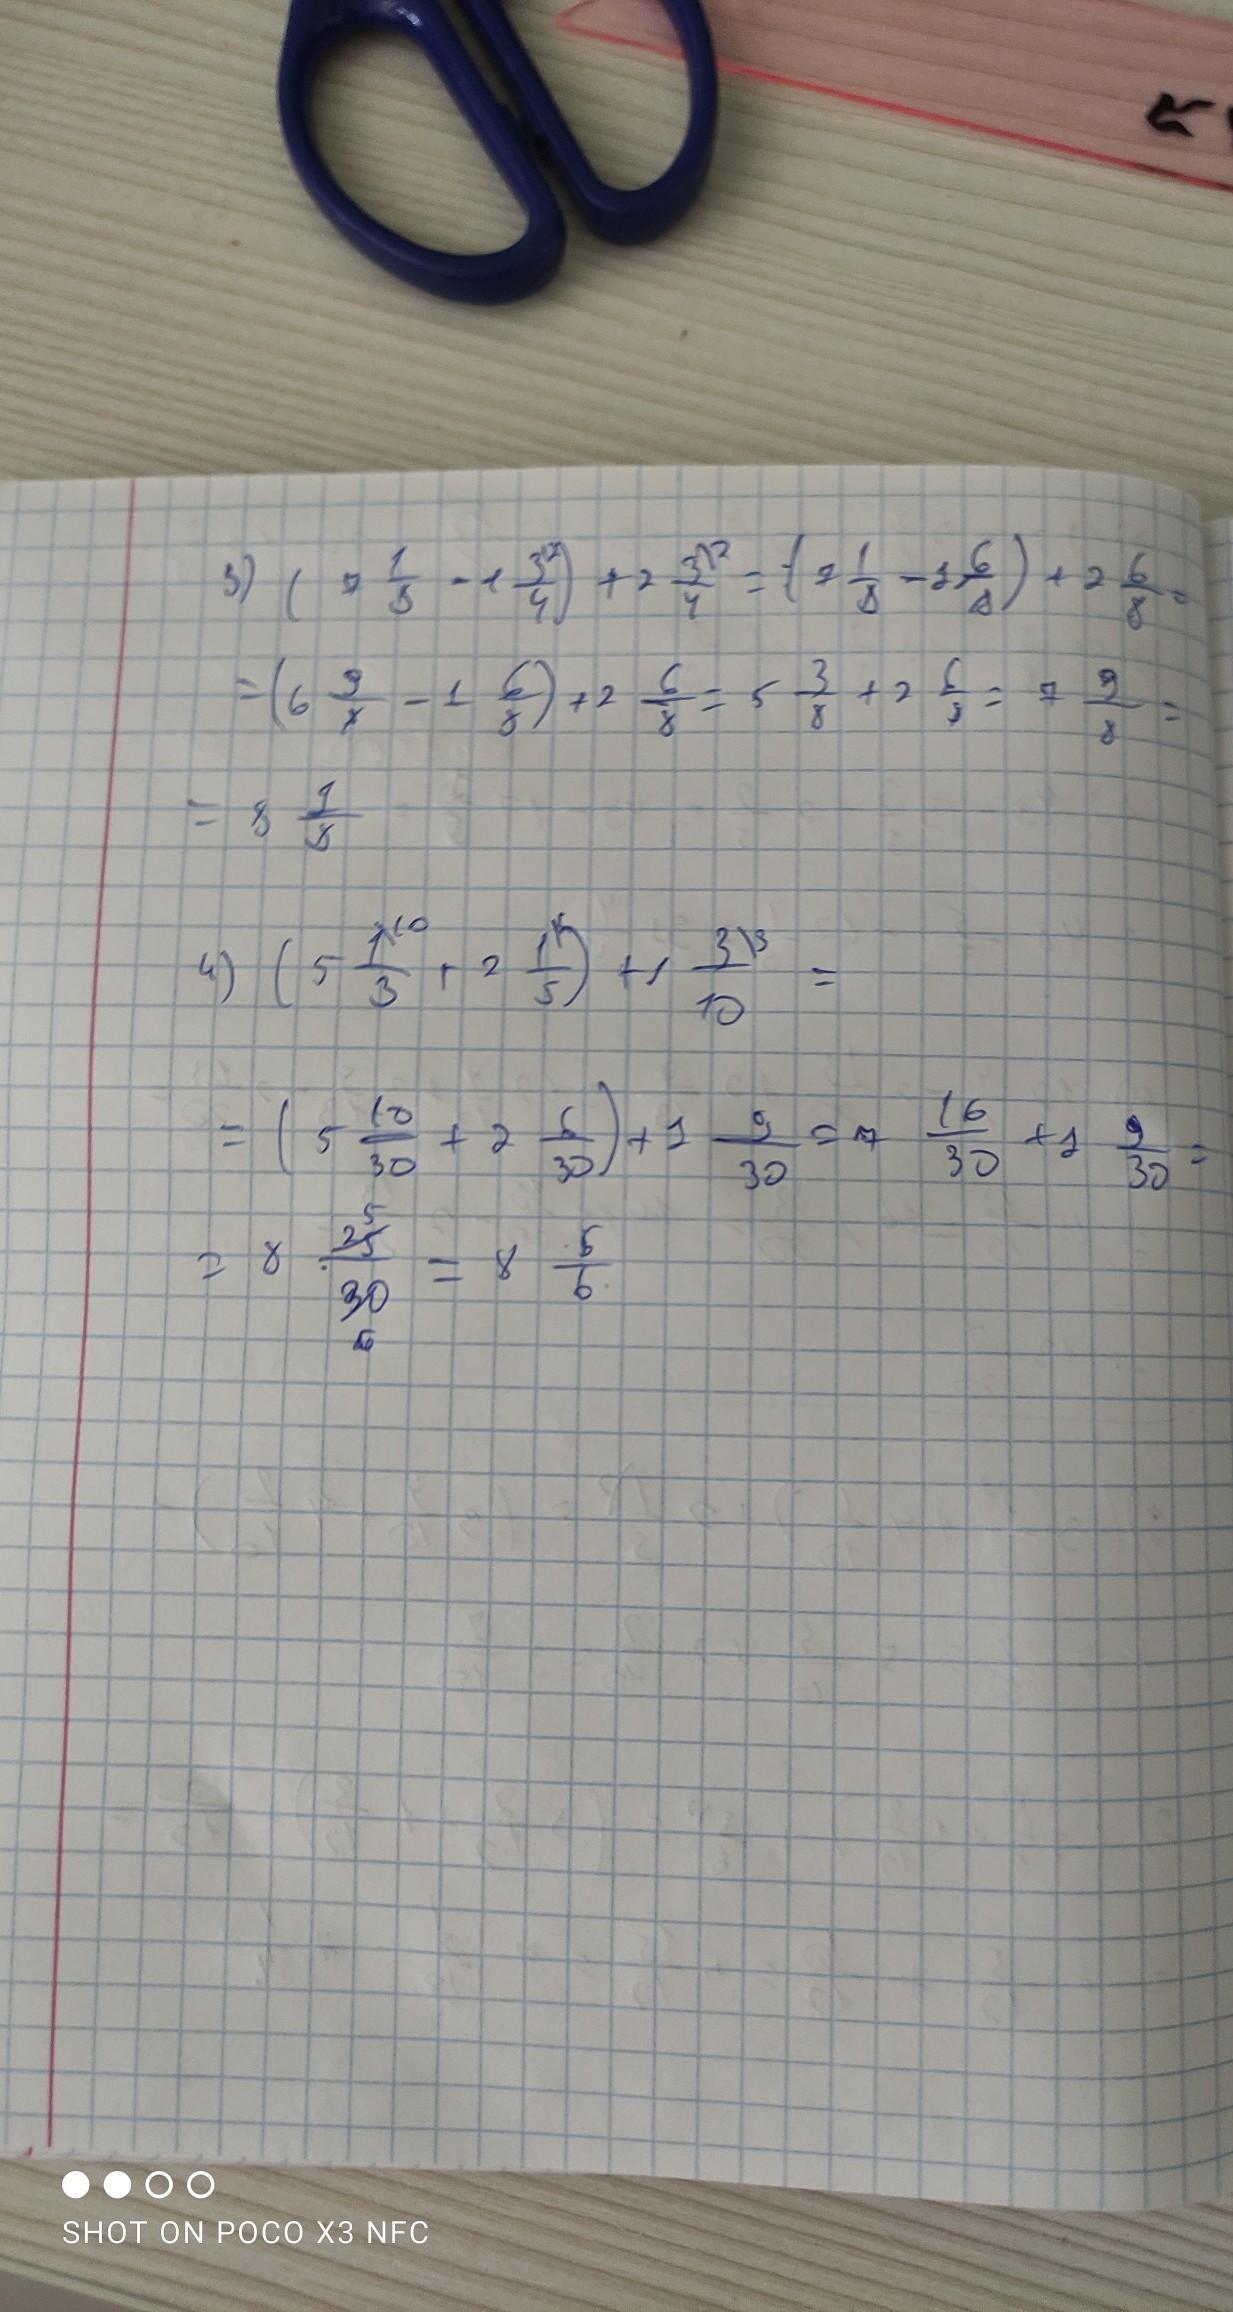 3) ( 7 1/8 - 1 3\2/4 ) + 2 3\2/4 = ( 7 1/8 - 1 6/8 ) + 2 6/8 =
= ( 6 9/8 - 1 6/8 ) + 2 6/8 = 5 3/8 + 2 6/8 = 7 9/8 =
= 8 1/8
4) ( 5 1\10/3 + 2 1\6/5 ) + 1 3\3/10 =
= ( 5 10/30 + 2 6/30 ) + 1 9/30 = 7 16/30 + 1 9/30 =
= 8 25/30 = 8 5/6
SHOT ON POCO X3 NFC